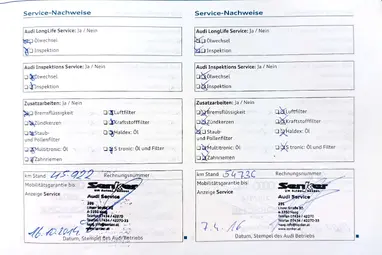 Service-Nachweise
Audi LongLife Service: Ja / Nein
Ölwechsel
Inspektion
Audi Inspektions Service: Ja / Nein
Ölwechsel
Inspektion
Zusatzarbeiten: Ja / Nein
Bremsflüssigkeit
Luftfilter
Zündkerzen
Kraftstofffilter
Staub- und Pollenfilter
Haldex: Öl
Multitronic: Öl
S tronic: Öl und Filter
Zahnriemen
km Stand 45922 Rechnungsnummer
Mobilitätsgarantie bis
Anzeige Service
Senker
Audi Service
16.10.2014
Datum, Stempel des Audi Betriebs
Service-Nachweise
Audi LongLife Service: Ja / Nein
Ölwechsel
Inspektion
Audi Inspektions Service: Ja / Nein
Ölwechsel
Inspektion
Zusatzarbeiten: Ja / Nein
Bremsflüssigkeit
Luftfilter
Zündkerzen
Kraftstofffilter
Staub- und Pollenfilter
Haldex: Öl
Multitronic: Öl
S tronic: Öl und Filter
Zahnriemen
km Stand 54736 Rechnungsnummer
Mobilitätsgarantie bis
Anzeige Service
Senker
Audi Service
7.4.16
Datum, Stempel des Audi Betriebs